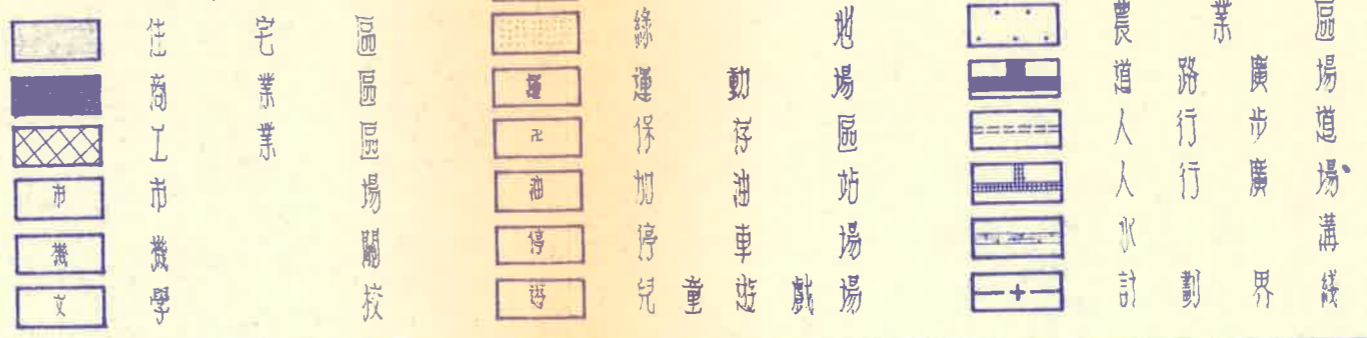 住宅區
商業區
工業區
市 市場
機 機關
文 學校
綠地
運 運動場
卍 保存區
油 加油站
停 停車場
遊 兒童遊戲場
農業區
道路廣場
人行步道
人行廣場
水溝
計劃界綫